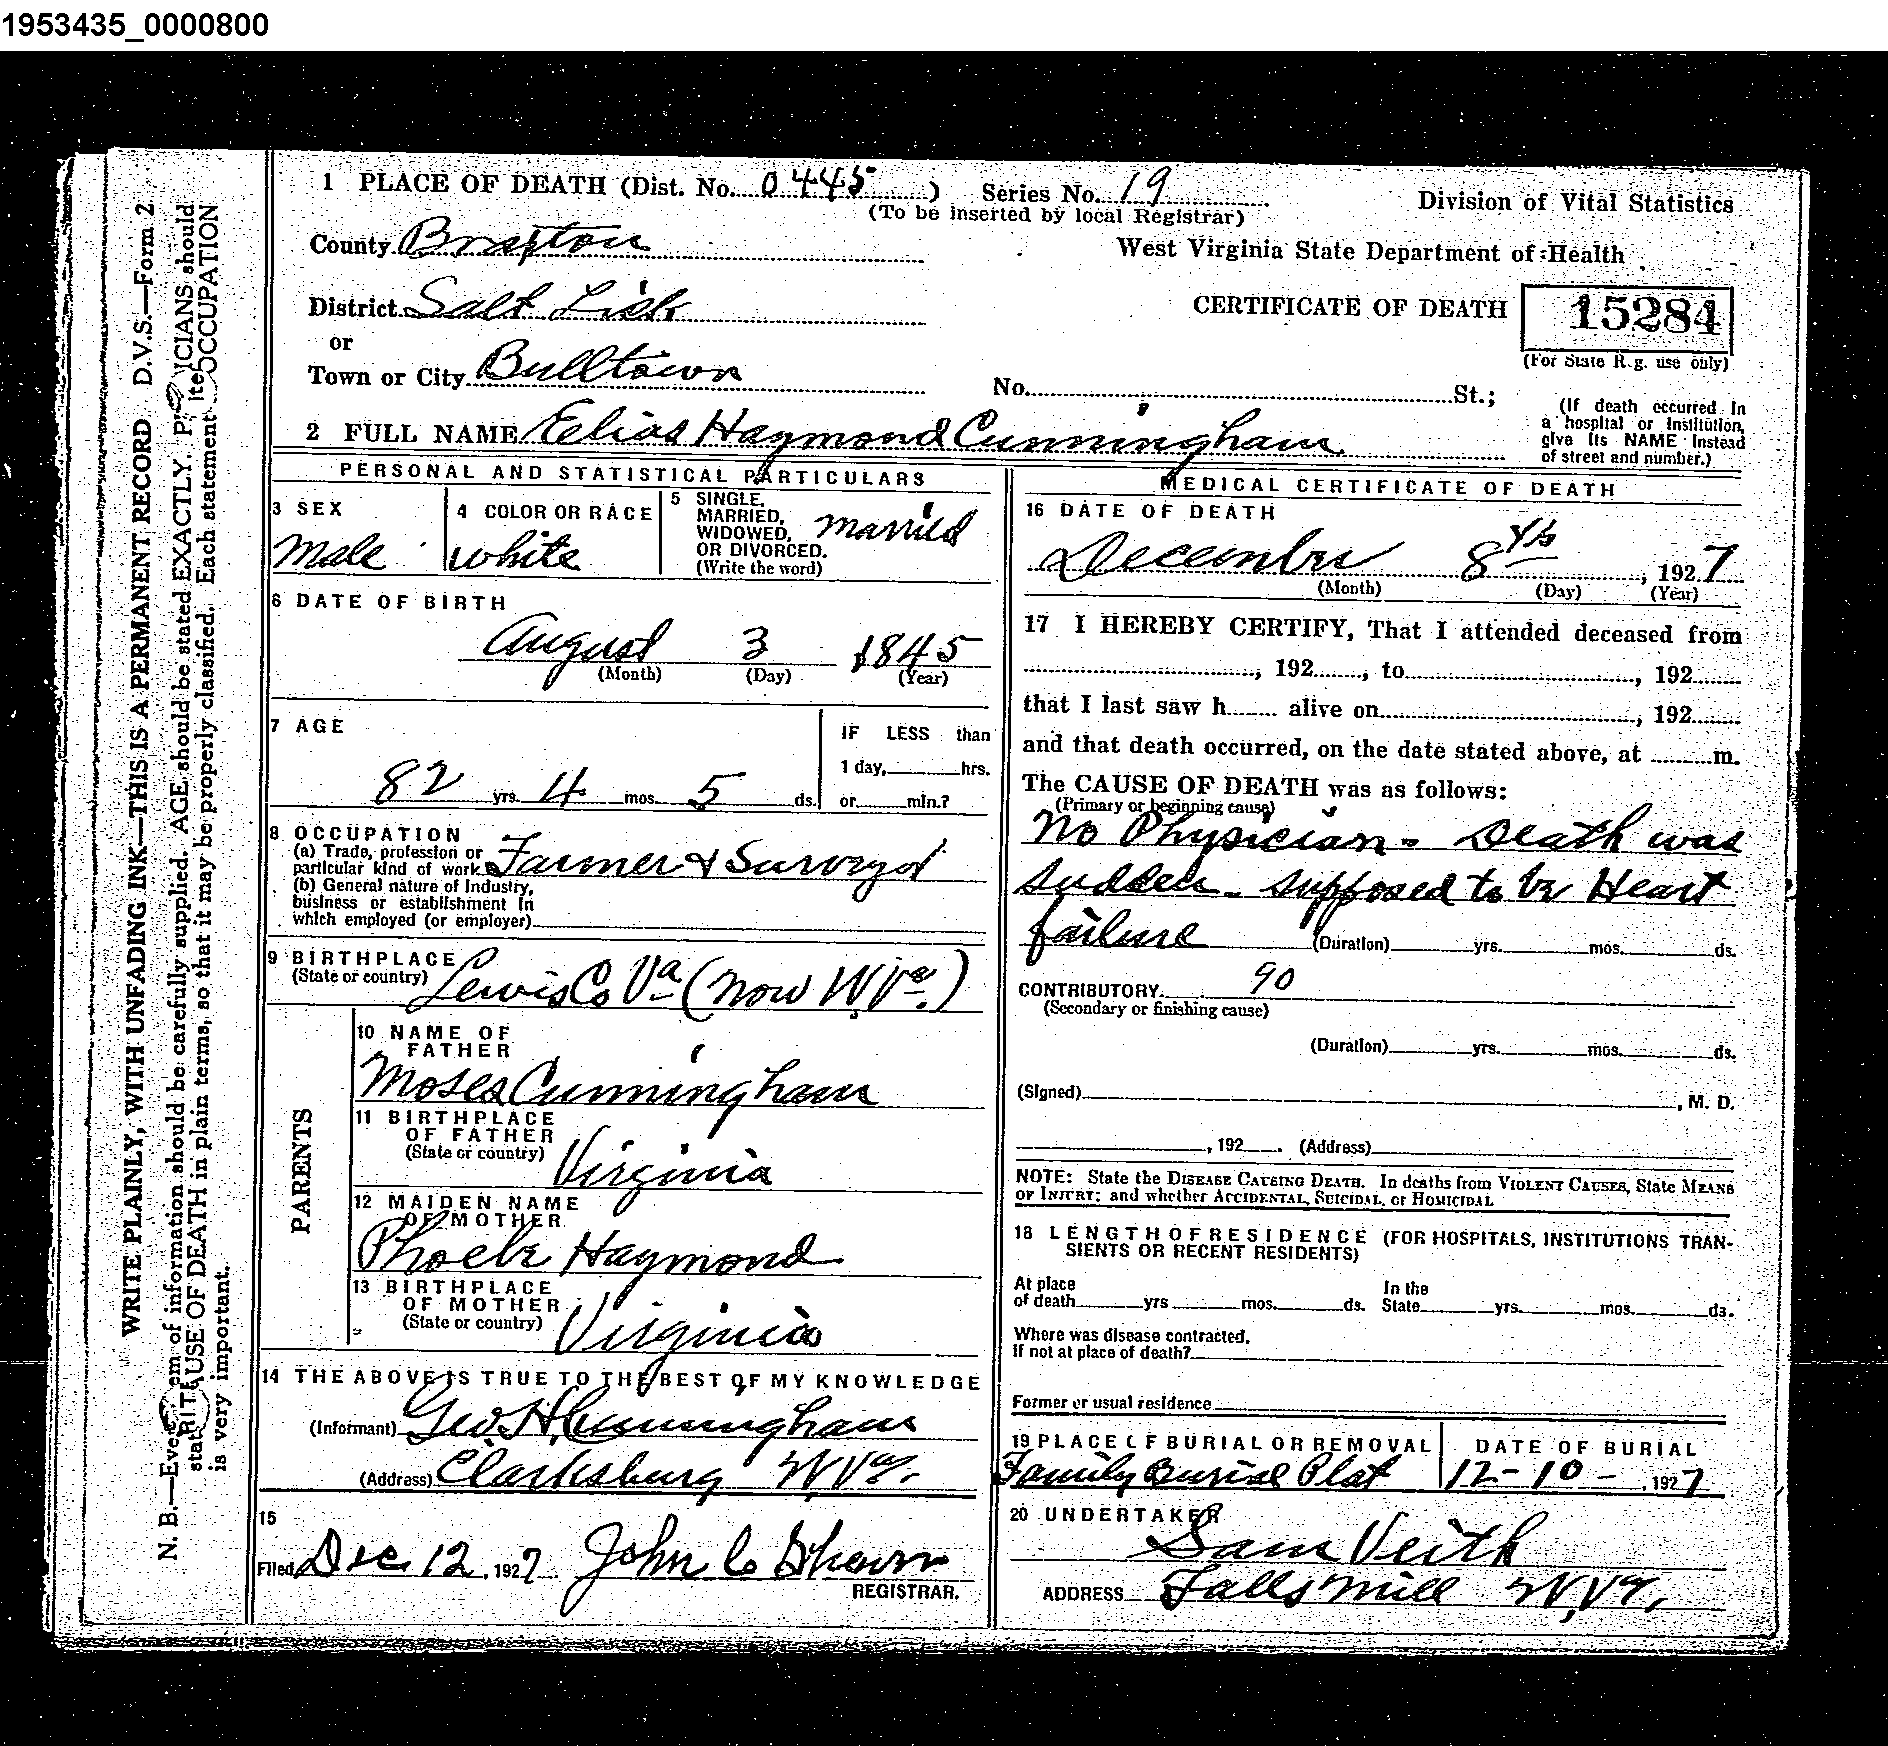 1953435_0000800
1 PLACE OF DEATH (Dist. No. 0445 ) Series No. 19
(To be inserted by local Registrar)
Division of Vital Statistics
County Braxton
West Virginia State Department of Health
District Salt Lick
CERTIFICATE OF DEATH
15284
(For State Reg. use only)
or
Town or City Bulltown
No. St.;
(If death occurred in
a hospital or Institution,
give its NAME instead
of street and number.)
2 FULL NAME Elias Haymond Cunningham
PERSONAL AND STATISTICAL PARTICULARS
3 SEX
Male
4 COLOR OR RACE
White
5 SINGLE,
MARRIED,
WIDOWED,
OR DIVORCED.
(Write the word)
married
6 DATE OF BIRTH
August 3 1845
(Month) (Day) (Year)
7 AGE
82 yrs. 4 mos. 5 ds.
IF LESS than
1 day, hrs.
or min.?
8 OCCUPATION
(a) Trade, profession or
particular kind of work Farmer & Surveyor
(b) General nature of Industry,
business or establishment in
which employed (or employer)
9 BIRTHPLACE
(State or country) Lewis Co Va (now W.Va.)
PARENTS
10 NAME OF
FATHER
Moses Cunningham
11 BIRTHPLACE
OF FATHER
(State or country) Virginia
12 MAIDEN NAME
OF MOTHER
Phoebe Haymond
13 BIRTHPLACE
OF MOTHER
(State or country) Virginia
14 THE ABOVE IS TRUE TO THE BEST OF MY KNOWLEDGE
(Informant) Geo. H. Cunningham
(Address) Clarksburg W.Va.
15
Filed Dec. 12, 1927 John C
REGISTRAR.
MEDICAL CERTIFICATE OF DEATH
16 DATE OF DEATH
December 8th, 1927
(Month) (Day) (Year)
17 I HEREBY CERTIFY, That I attended deceased from
, 192 , to , 192
that I last saw h alive on , 192
and that death occurred, on the date stated above, at m.
The CAUSE OF DEATH was as follows:
(Primary or beginning cause)
No Physician - Death was
sudden - supposed to be Heart
failure (Duration) yrs. mos. ds.
CONTRIBUTORY 90
(Secondary or finishing cause)
(Duration) yrs. mos. ds.
(Signed) , M. D.
, 192 . (Address)
NOTE: State the DISEASE CAUSING DEATH. In deaths from VIOLENT CAUSES, State MEANS
OF INJURY; and whether ACCIDENTAL, SUICIDAL, or HOMICIDAL
18 LENGTH OF RESIDENCE (FOR HOSPITALS, INSTITUTIONS TRAN-
SIENTS OR RECENT RESIDENTS)
At place
of death yrs mos. ds.
In the
State yrs. mos. ds.
Where was disease contracted,
If not at place of death?
Former or usual residence
19 PLACE OF BURIAL OR REMOVAL
Family Burial Plat
DATE OF BURIAL
12-10-, 1927
20 UNDERTAKER
Sam Veith
ADDRESS Falls Mill W.Va.
WRITE PLAINLY, WITH UNFADING INK—THIS IS A PERMANENT RECORD D.V.S.—Form 2
N. B.—Every item of information should be carefully supplied. AGE should be stated EXACTLY. PHYSICIANS should
state CAUSE OF DEATH in plain terms, so that it may be properly classified. Each statement OCCUPATION
is very important.